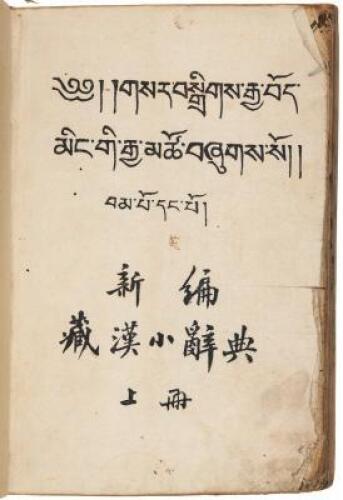 ༄༅། །གསར་བསྒྲིགས་རྒྱ་བོད་
མིང་གི་རྒྱ་མཚོ་བཞུགས་སོ། །
བམ་པོ་དང་པོ།
新 编
藏漢小辭典
上冊